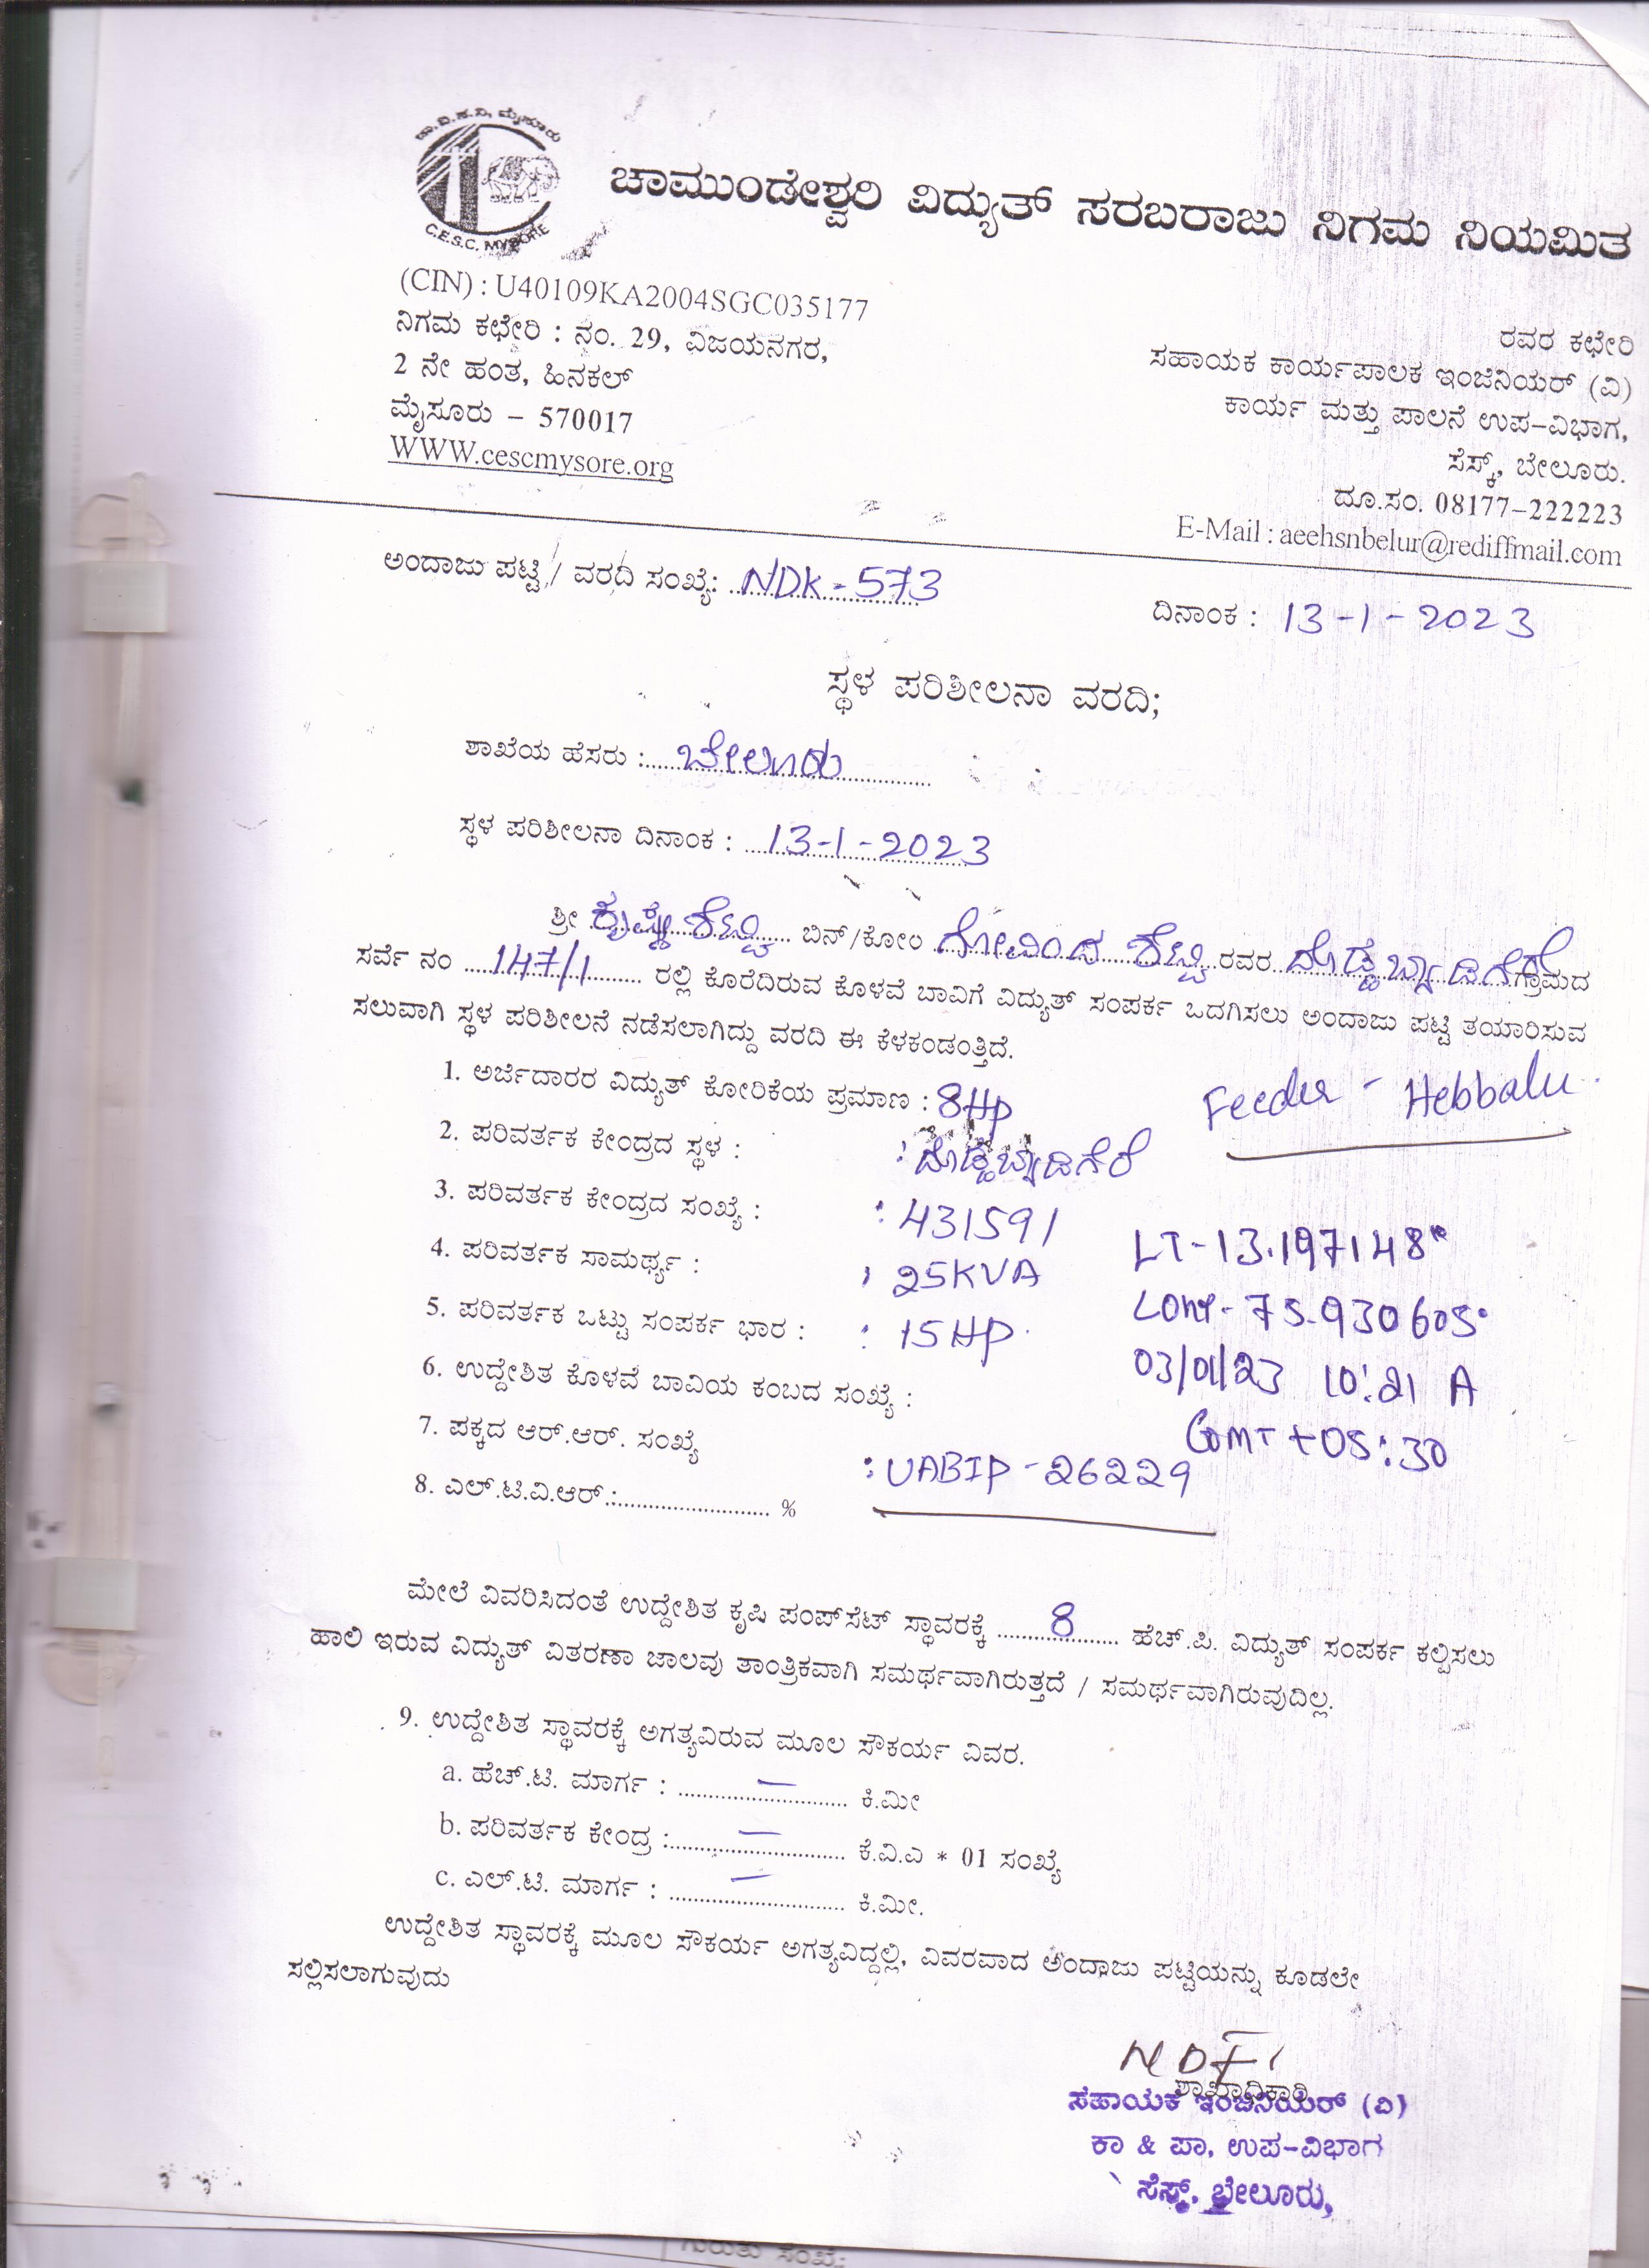 ಚಾ.ವಿ.ಸ.ನಿ, ಮೈಸೂರು
C.E.S.C. MYSORE
ಚಾಮುಂಡೇಶ್ವರಿ ವಿದ್ಯುತ್ ಸರಬರಾಜು ನಿಗಮ ನಿಯಮಿತ
(CIN) : U40109KA2004SGC035177
ನಿಗಮ ಕಛೇರಿ : ನಂ. 29, ವಿಜಯನಗರ,
2 ನೇ ಹಂತ, ಹಿನಕಲ್
ಮೈಸೂರು – 570017
WWW.cescmysore.org
ರವರ ಕಛೇರಿ
ಸಹಾಯಕ ಕಾರ್ಯಪಾಲಕ ಇಂಜಿನಿಯರ್ (ವಿ)
ಕಾರ್ಯ ಮತ್ತು ಪಾಲನೆ ಉಪ-ವಿಭಾಗ,
ಸೆಸ್ಕ್, ಬೇಲೂರು.
ದೂ.ಸಂ. 08177-222223
E-Mail : aeehsnbelur@rediffmail.com
ಅಂದಾಜು ಪಟ್ಟಿ / ವರದಿ ಸಂಖ್ಯೆ: NDK - 573
ದಿನಾಂಕ : 13-1-2023
ಸ್ಥಳ ಪರಿಶೀಲನಾ ವರದಿ;
ಶಾಖೆಯ ಹೆಸರು : ಬೇಲೂರು
ಸ್ಥಳ ಪರಿಶೀಲನಾ ದಿನಾಂಕ : 13-1-2023
ಶ್ರೀ ಕೃಷ್ಣಶೆಟ್ಟಿ ಬಿನ್/ಕೋಂ ಗೋವಿಂದ ಶೆಟ್ಟಿ ರವರ ದೊಡ್ಡಬ್ಯಾಡಿಗೆರೆ ಗ್ರಾಮದ
ಸರ್ವೆ ನಂ 147/1 ರಲ್ಲಿ ಕೊರೆದಿರುವ ಕೊಳವೆ ಬಾವಿಗೆ ವಿದ್ಯುತ್ ಸಂಪರ್ಕ ಒದಗಿಸಲು ಅಂದಾಜು ಪಟ್ಟಿ ತಯಾರಿಸುವ
ಸಲುವಾಗಿ ಸ್ಥಳ ಪರಿಶೀಲನೆ ನಡೆಸಲಾಗಿದ್ದು ವರದಿ ಈ ಕೆಳಕಂಡಂತ್ತಿದೆ.
1. ಅರ್ಜಿದಾರರ ವಿದ್ಯುತ್ ಕೋರಿಕೆಯ ಪ್ರಮಾಣ : 8HP
Feeder - Hebbalu
2. ಪರಿವರ್ತಕ ಕೇಂದ್ರದ ಸ್ಥಳ : : ದೊಡ್ಡಬ್ಯಾಡಿಗೆರೆ
3. ಪರಿವರ್ತಕ ಕೇಂದ್ರದ ಸಂಖ್ಯೆ : : 431591
4. ಪರಿವರ್ತಕ ಸಾಮರ್ಥ್ಯ : : 25KVA
5. ಪರಿವರ್ತಕ ಒಟ್ಟು ಸಂಪರ್ಕ ಭಾರ : : 15HP
6. ಉದ್ದೇಶಿತ ಕೊಳವೆ ಬಾವಿಯ ಕಂಬದ ಸಂಖ್ಯೆ :
7. ಪಕ್ಕದ ಆರ್.ಆರ್. ಸಂಖ್ಯೆ : UABIP - 26229
8. ಎಲ್.ಟಿ.ವಿ.ಆರ್.:.......................... %
LT - 13.197148°
Long - 75.930605°
03/01/23 10:21 A
GMT +05:30
ಮೇಲೆ ವಿವರಿಸಿದಂತೆ ಉದ್ದೇಶಿತ ಕೃಷಿ ಪಂಪ್‌ಸೆಟ್ ಸ್ಥಾವರಕ್ಕೆ 8 ಹೆಚ್.ಪಿ. ವಿದ್ಯುತ್ ಸಂಪರ್ಕ ಕಲ್ಪಿಸಲು
ಹಾಲಿ ಇರುವ ವಿದ್ಯುತ್ ವಿತರಣಾ ಜಾಲವು ತಾಂತ್ರಿಕವಾಗಿ ಸಮರ್ಥವಾಗಿರುತ್ತದೆ / ಸಮರ್ಥವಾಗಿರುವುದಿಲ್ಲ.
9. ಉದ್ದೇಶಿತ ಸ್ಥಾವರಕ್ಕೆ ಅಗತ್ಯವಿರುವ ಮೂಲ ಸೌಕರ್ಯ ವಿವರ.
a. ಹೆಚ್.ಟಿ. ಮಾರ್ಗ : – ಕಿ.ಮೀ
b. ಪರಿವರ್ತಕ ಕೇಂದ್ರ : – ಕೆ.ವಿ.ಎ * 01 ಸಂಖ್ಯೆ
c. ಎಲ್.ಟಿ. ಮಾರ್ಗ : – ಕಿ.ಮೀ.
ಉದ್ದೇಶಿತ ಸ್ಥಾವರಕ್ಕೆ ಮೂಲ ಸೌಕರ್ಯ ಅಗತ್ಯವಿದ್ದಲ್ಲಿ, ವಿವರವಾದ ಅಂದಾಜು ಪಟ್ಟಿಯನ್ನು ಕೂಡಲೇ
ಸಲ್ಲಿಸಲಾಗುವುದು
ಶಾಖಾಧಿಕಾರಿ
ಸಹಾಯಕ ಇಂಜಿನಿಯರ್ (ವಿ)
ಕಾ & ಪಾ, ಉಪ-ವಿಭಾಗ
ಸೆಸ್ಕ್, ಬೇಲೂರು,
ಗುರುತು ಸಂಖ್ಯೆ: